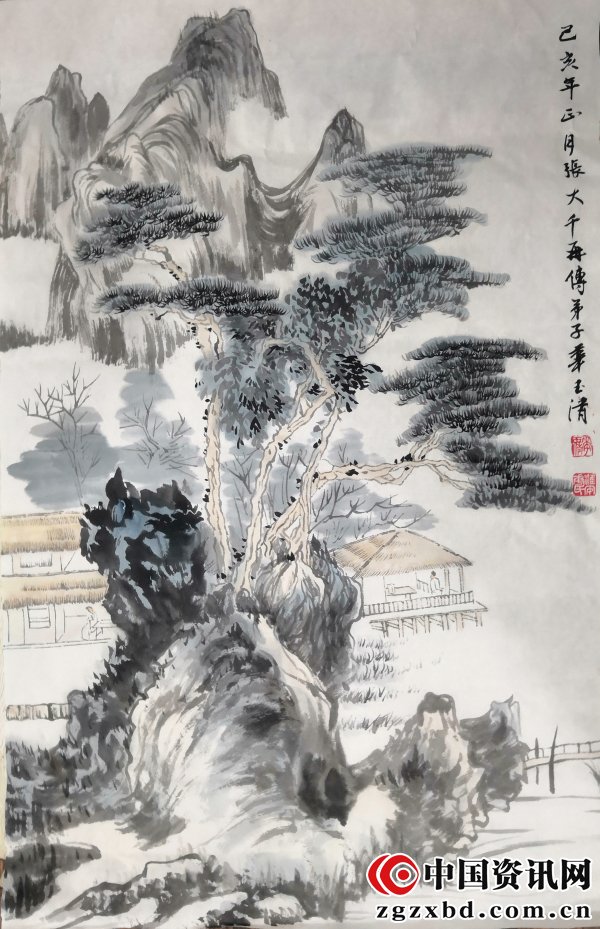 己亥年正月張大千再傳弟子華玉清
中国资讯网
zgzxbd.com.cn